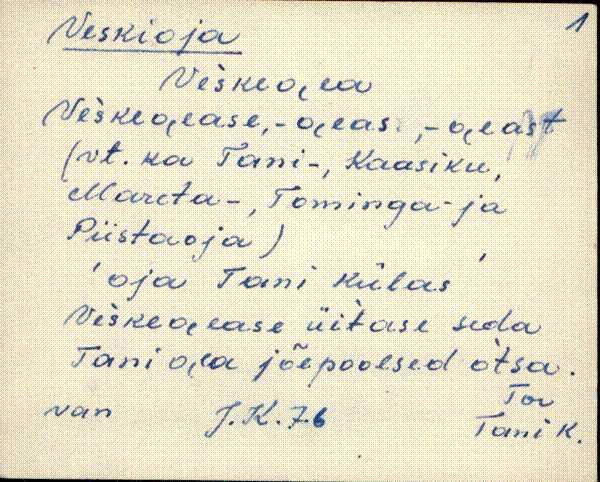 Veskioja 1
Vèskeo̭ea
Vèskeo̭ease, -o̭eas, -o̭east
(vt. ka Tani-, Kaasiku,
Mareta-, Tominga- ja
Piistaoja)
'oja Tani külas'
Vèskeo̭ease üitase seda
Tani o̭ea jõepoolsed òtsa.
van J.K.76 Tor
Tani K.